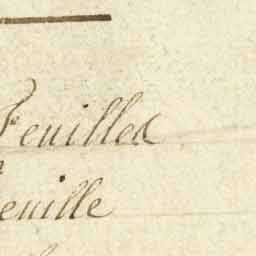 Feuilles
euille